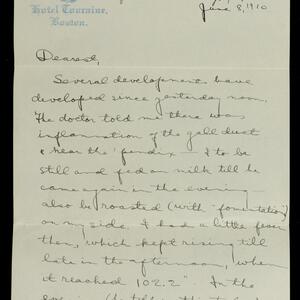 Hotel Touraine,
Boston.
June 8, 1910
Dearest,
Several developments have
developed since yesterday noon.
The doctor told me there was
inflammation of the gall duct
& near the 'pendix — I to be
still and fed on milk till he
came again in the evening —
also be roasted (with "fomentation")
on my side. I had a little fever
then, which kept rising till
late in the afternoon, when
it reached 102.2°. In the